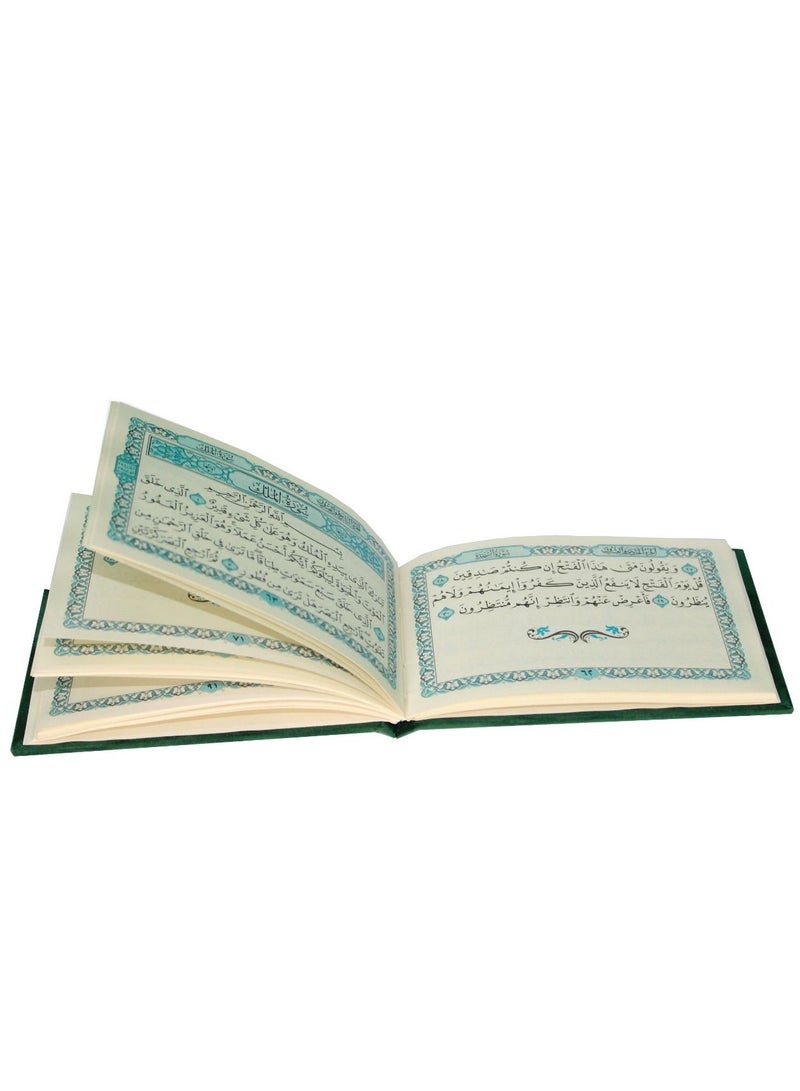 سُورَةُ السَّجْدَةِ
وَيَقُولُونَ مَتَىٰ هَٰذَا ٱلْفَتْحُ إِن كُنتُمْ صَٰدِقِينَ
قُلْ يَوْمَ ٱلْفَتْحِ لَا يَنفَعُ ٱلَّذِينَ كَفَرُوٓا۟ إِيمَٰنُهُمْ وَلَا هُمْ
يُنظَرُونَ ٢٩ فَأَعْرِضْ عَنْهُمْ وَٱنتَظِرْ إِنَّهُم مُّنتَظِرُونَ ٣٠
٦٢
سُورَةُ المُلْكِ
سُورَةُ المُلْكِ
بِسْمِ ٱللَّهِ ٱلرَّحْمَٰنِ ٱلرَّحِيمِ
تَبَٰرَكَ ٱلَّذِى بِيَدِهِ ٱلْمُلْكُ وَهُوَ عَلَىٰ كُلِّ شَىْءٍ قَدِيرٌ ١ ٱلَّذِى خَلَقَ
ٱلْمَوْتَ وَٱلْحَيَوٰةَ لِيَبْلُوَكُمْ أَيُّكُمْ أَحْسَنُ عَمَلًا وَهُوَ ٱلْعَزِيزُ ٱلْغَفُورُ
٢ ٱلَّذِى خَلَقَ سَبْعَ سَمَٰوَٰتٍ طِبَاقًا مَّا تَرَىٰ فِى خَلْقِ ٱلرَّحْمَٰنِ مِن
تَفَٰوُتٍ فَٱرْجِعِ ٱلْبَصَرَ هَلْ تَرَىٰ مِن فُطُورٍ ٣ ثُمَّ ٱرْجِعِ ٱلْبَصَرَ كَرَّتَيْنِ
٦٣
٧١
٩١